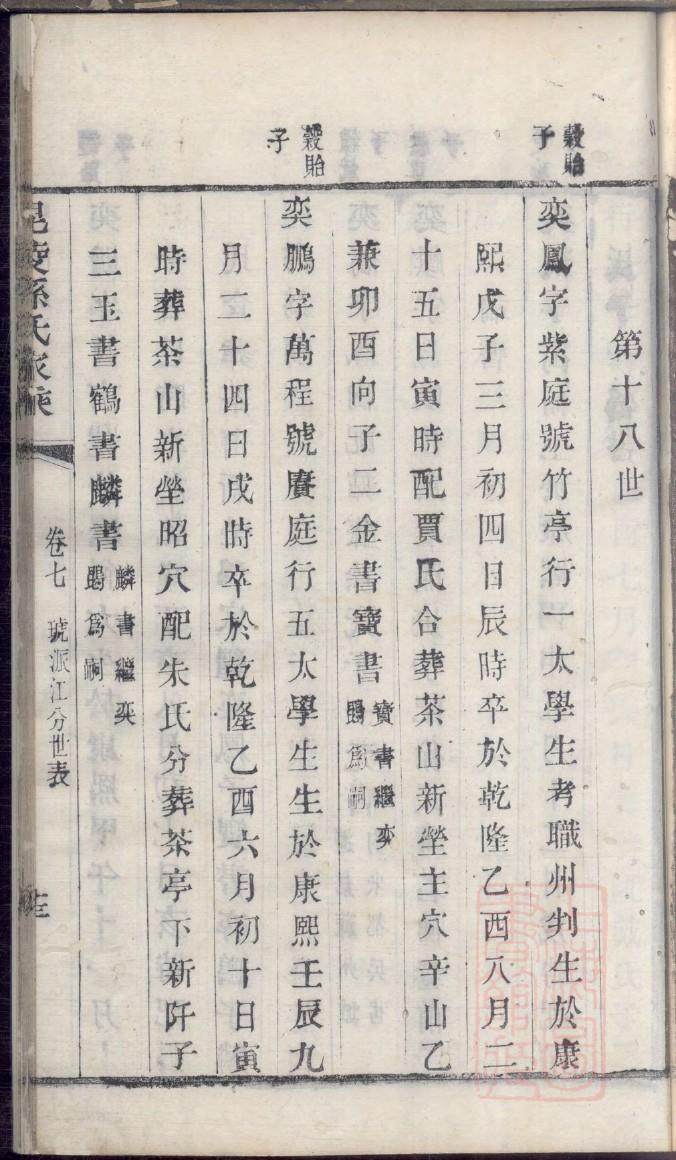 第十八世
穀貽
子
奕鳳字紫庭號竹亭行一太學生考職州判生於康
熙戊子三月初四日辰時卒於乾隆乙酉八月二
十五日寅時配賈氏合葬茶山新塋主穴辛山乙
兼卯酉向子二金書寶書寶書繼奕
鶠爲嗣
穀貽
子
奕鵬字萬程號賡庭行五太學生生於康熙壬辰九
月二十四日戌時卒於乾隆乙酉六月初十日寅
時葬茶山新塋昭穴配朱氏分葬茶亭下新阡子
三玉書鶴書麟書麟書繼奕
鶠爲嗣
毘陵孫氏家乘
卷七 號派江分世表